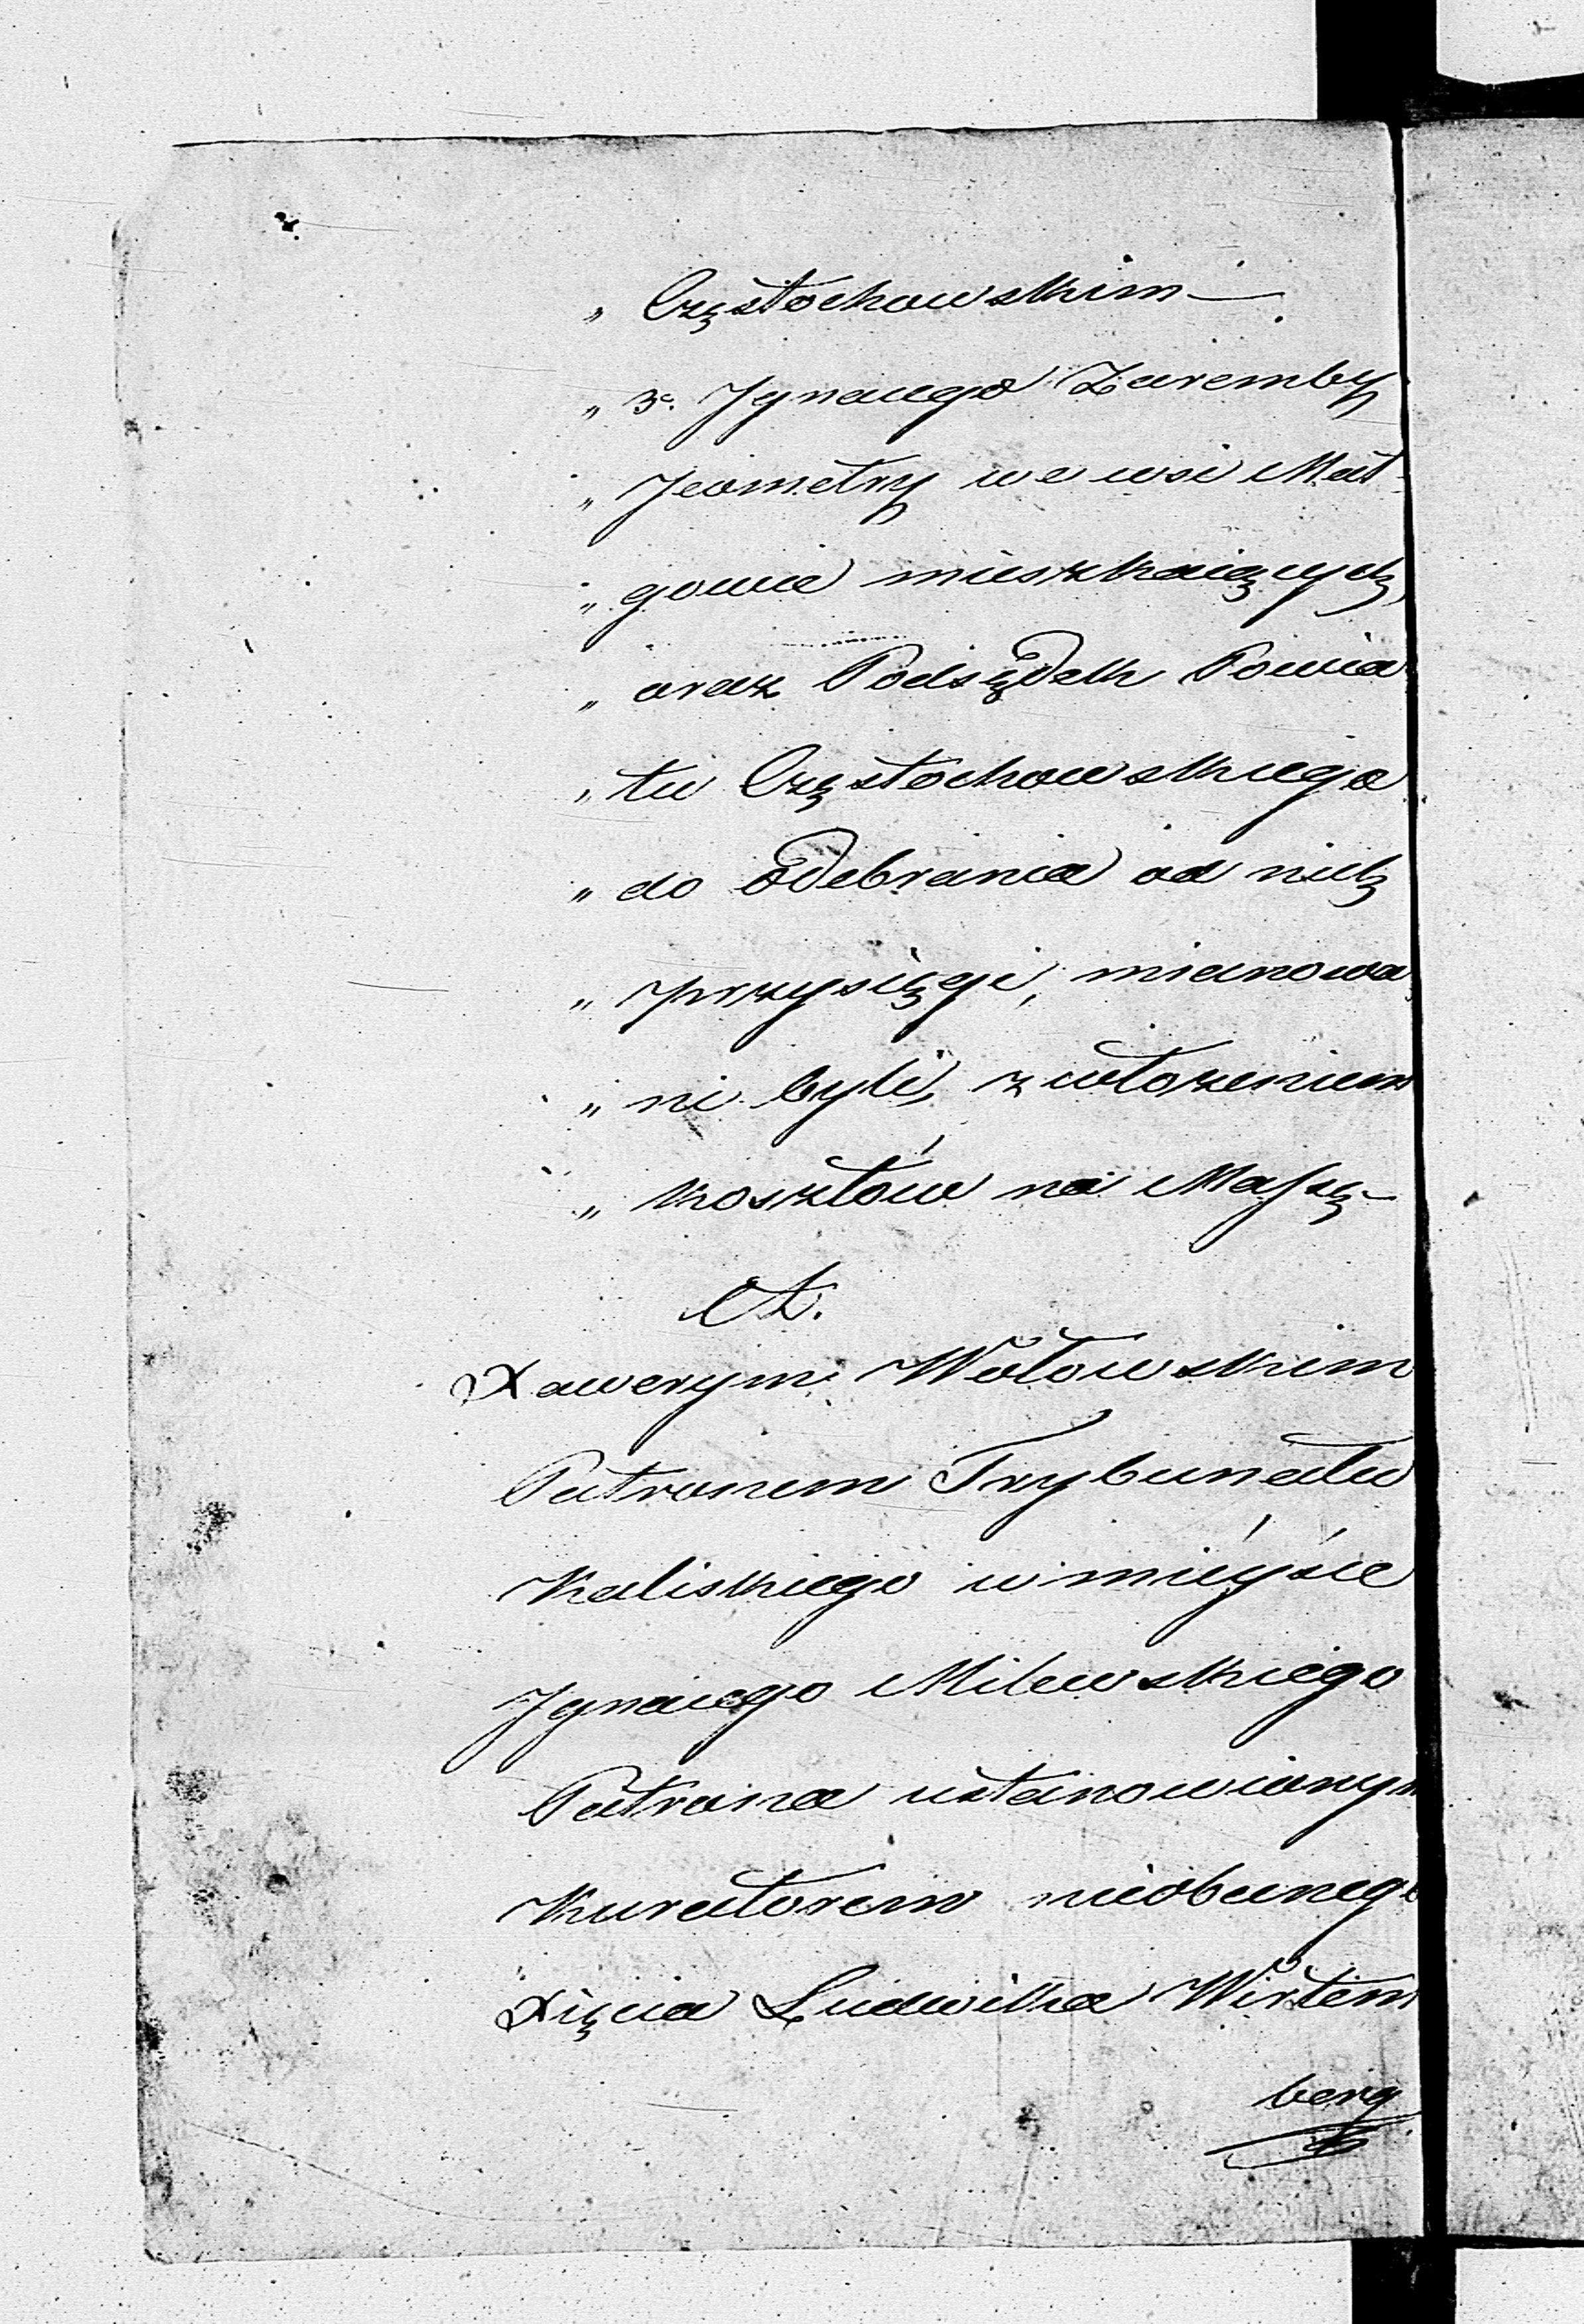 „ Częstochowskim —
„ 3c. Jgnacego Zaremby
„ Jeometry we wsi Mát-
„ gowie mieszkaiących,
„ oraz Podsędek Powia-
„ tu Częstochowskiego
„ do odebrania od nich
„ przysięgi, mianowa-
„ ni byli, z włożeniem
„ kosztów na Massę —
A.
Xawerym Wołowskim
Patronem Trybunału
Kaliskiego w mieyśce
Jgnacego Milewskiego
Patrona ustanowionym
Kuratorem nieobecnego
Xięcia Ludwika Wirtem
berg